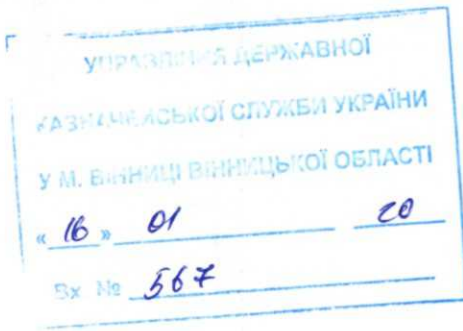 УПРАВЛІННЯ ДЕРЖАВНОЇ
КАЗНАЧЕЙСЬКОЇ СЛУЖБИ УКРАЇНИ
У М. ВІННИЦІ ВІННИЦЬКОЇ ОБЛАСТІ
« 16 » 01 20
Вх № 567